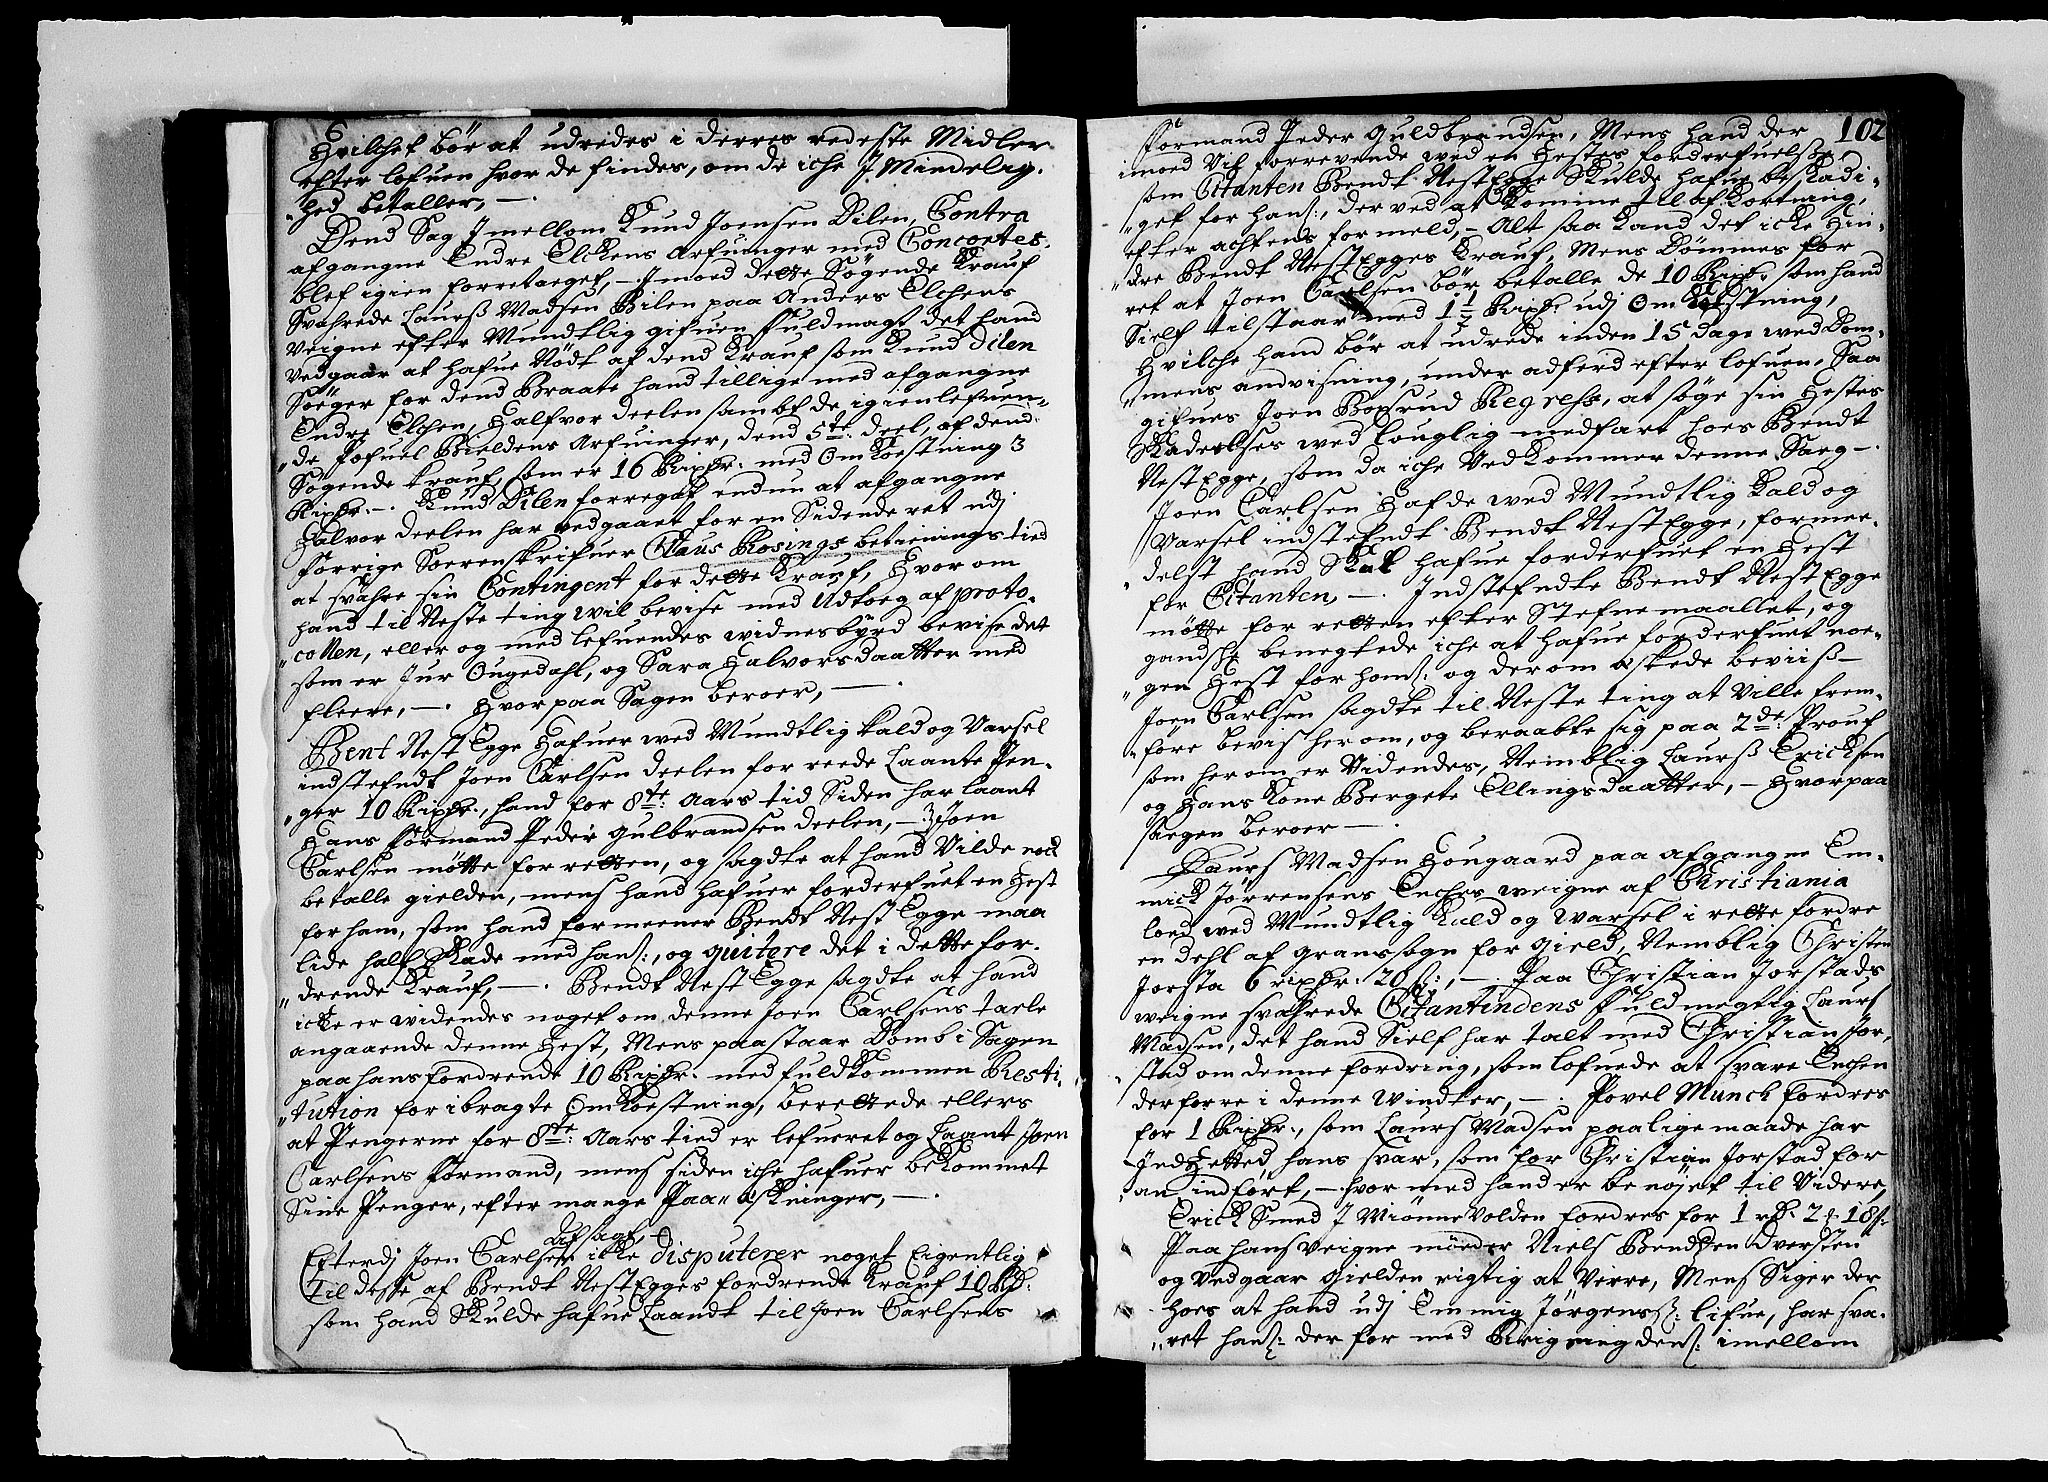 Hvilchet bör at udredes i derres redeste Midler
efter lofuen hvor de findes, om de iche J Mindelig-
"hed betaller, —
Dend Sag Jmellom Knud Joensen Dilen, Contra
afgangne Endre Elckens Arfuinger med Consortes
blef igien forretaget, — Jmod dette Sögende Krauf
Svahrede Laurß Madsen Bilen paa Anders Elchens
veigne efter Mundtlig gifuen fuldmagt det hand
vedgaar at hafue Nödt af dend Krauf som Knud Dilen
Söeger for dend Braate hand tillige med afgangne
Endre Elchen, Halfvor deelen sambt de igienlefuen-
"de Pofuel Bieldens Arfuinger, dend 5te: deel, af dend
Sögende krauf, som er 16 Rixdr. med Omkoestning 3
Rixdr. —. Knud Dilen forregaf endnu at afgangne
Halvor deelen har vedgaaet for en Sidende ret udj
förrige Sorenskrifuer Claus Rosings betienings tied
at svahre sin Contingent for dette Krauf, Hvor om
hand til Neste ting wil bevise med Udtoeg af proto-
"collen, eller og med lefuendes widnesbyrd bevise det
som er Jur Ougedahl, og Sara Halvorsdaatter med
fleere, —. Hvorpaa Sagen beroer, —.
Bent NestEgge Hafuer wed Mundtlig kald og Varsel
indstefndt Joen Carlsen deelen for reede Laante Pen-
"ger 10 Rixdr., hand for 8te: Aars tid Siden har laant
Hans formand Peder Gulbrandsen deelen, — Joen
Carlsen mötte for retten, og sagdte at hand Vilde nock
betalle gielden, mens hand hafuer forderfuet en Hest
for ham, som hand formeener Bendt NestEgge maa
lide half Skade med hans:, og quitere det i dette for-
"drende Krauf, —. Bendt NestEgge sagdte at hand
icke er widendes noget om denne Joen Carlsens tarle
angaaende denne Hest, Mens paastaar Domb i Sagen
paa hans fordrende 10 Rixdr. med fuldkommen Resti-
"tution for ibragte Omkoestning, berettede ellers
at Pengerne for 8te: Aars tied er lefueret og Laant Joen
Carlsens formand, mens siden iche hafuer bekommet
Sine Penger, efter mange Paa-Eskninger, —.
Afsagt,
Efterdj Joen Carlsen icke disputerer noget Eigentlig
til desse af Bendt NestEgges fordrende Krauf 10 Rd:
som hand Skulde hafue Laandt til Joen Carlsens
102
formand Peder Guldbrandsen, Mens hand der
imod Vil forrevende wed en Hestes forderfuelse
som Citanten Bendt NestEgge Skulde hafue beskadi-
"get for hans:, der ved at komme til afkortning,
efter achtens formeld, — Alt saa kand det icke Hin-
"dre Bendt NestEgges Krauf, Mens Dömmes for
ret at Joen Carlsen bör betalle de 10 Rixdr. som hand
Sielf tilstaar med 1 1/2 Rixdr. udj Omkostning,
Hvilche hand bör at udrede inden 15 dage wed Dom-
"mens anvisning, under adferd efter lofuen, Saa
gifues Joen Boxrud Regress, at söge sin Hestis
Skadelses wed louglig medfart hoes Bendt
NestEgge, som da iche Vedkommer denne Saeg —.
Joen Carlsen Hafde wed Mundtlig Kald og
Varsel indstefndt Bendt NestEgge, formee-
"delst hand Skal hafue forderfuet en Hest
for Citanten, —. Indstefndte Bendt NestEgge
mötte for retten efter Stefnemaallet, og
gandsche benegtede iche at hafue forderfuet noe-
"gen Hest for hans: og derom Eskede beviiß —
Joen Carlsen sagdte til Neste ting at Ville frem-
"före bevis herom, og beraabte sig paa 2de: Prouf
som herom er Videndes, Nemblig Laurß Ericksen
og Hans Kone Bergete Ellingsdaatter, — Hvorpaa
saegen beroer —.
Laurs Madsen Hougaard paa afgangne Em-
mick Jörrensens Enches weigne af Christiania
loed wed Mundtlig Kald og Warsel i rette fordre
en dehl af gransogn for gield, Nemblig Christen
Joersta 6 rixdr. 20 s:, —. Paa Christian Jorstads
weigne svahrede Citantindens fuldmegtig Laurs
Madsen, det hand Sielf har talt med Christian Jor-
stad om denne fordring, som lofuede at svare Enchen
derforre i denne Windter, —. Povel Munch fordres
for 1 Rixdr., som Laurs Madsen paa lige maade har
Indhetted hans svar, som for Christian Jorstad for
an indfört, —. hvor med hand er benöjet til Videre,
Erick Smed J MiönneVolden fordres for 1 rd. 2 ₰ 18 s.
Paa hans veigne möeder Niels Bendsen Dversten
og Vedgaar gielden rigtig at Verre, Mens Siger der
hoes at hand udj Emmig Jörgensß: lifue, har sva-
"ret hans: der for med Krigningdens: imellom